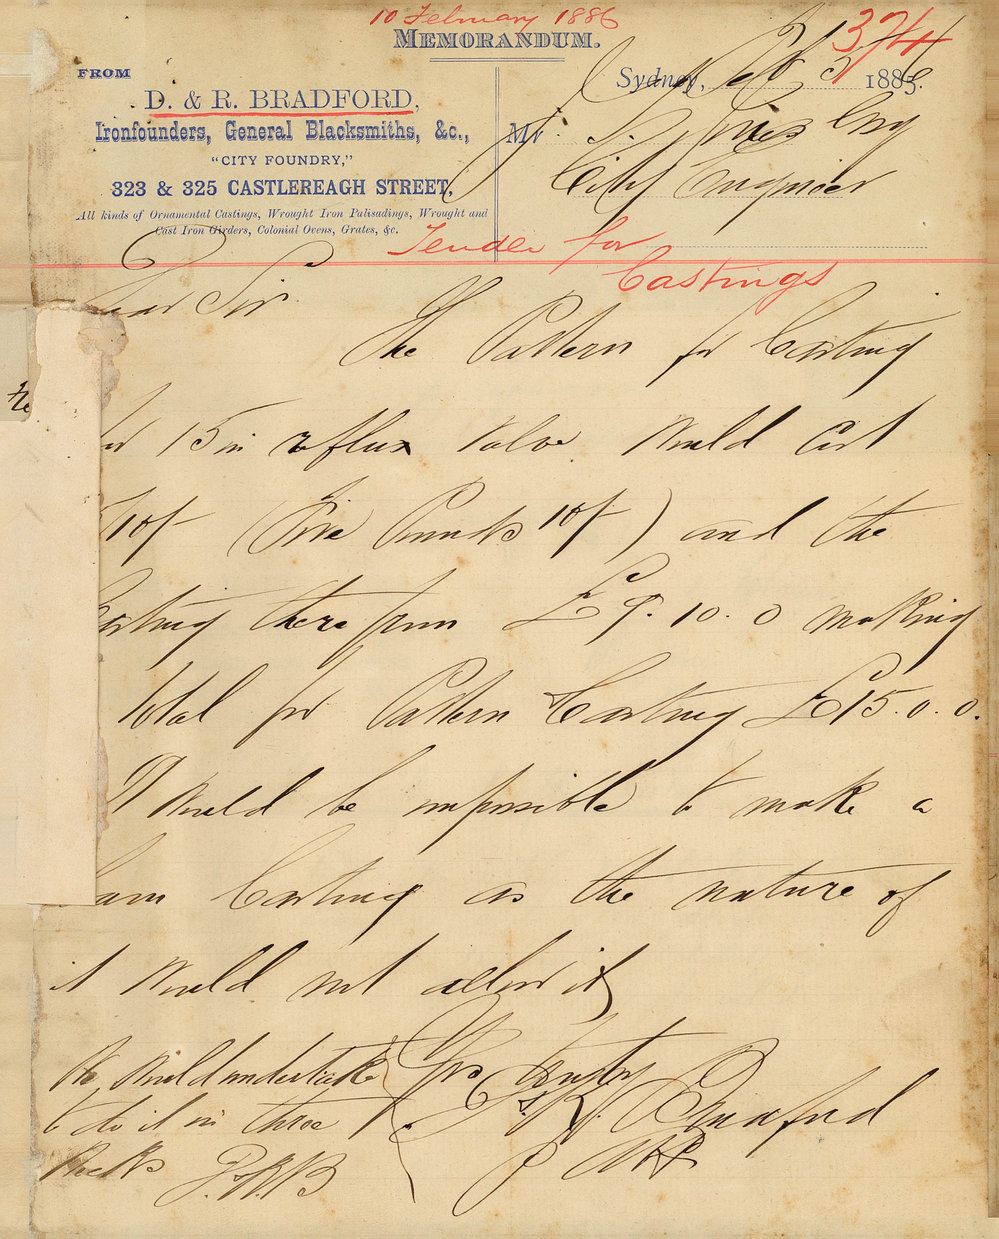 10 February 1886
MEMORANDUM.
374
FROM
Sydney, Feb 5 1886.
D. & R. BRADFORD,
Ironfounders, General Blacksmiths, &c.,
Mr. Jones Esq
"CITY FOUNDRY,"
City Engineer
323 & 325 CASTLEREAGH STREET,
All kinds of Ornamental Castings, Wrought Iron Palisadings, Wrought and
Cast Iron Girders, Colonial Ovens, Grates, &c.
Tender for
Castings
Dear Sir
The Pattern for Casting
for 15 in reflux Valve Would Cost
10/- (Five Pounds 10/-) and the
Casting there from £9.10.0 making
total for Pattern & Casting £15.0.0.
It Would be impossible to make a
Casting as the nature of
it Would not allow it
We Would undertake
to do it in three
Weeks
Yrs
D. & R. Bradford